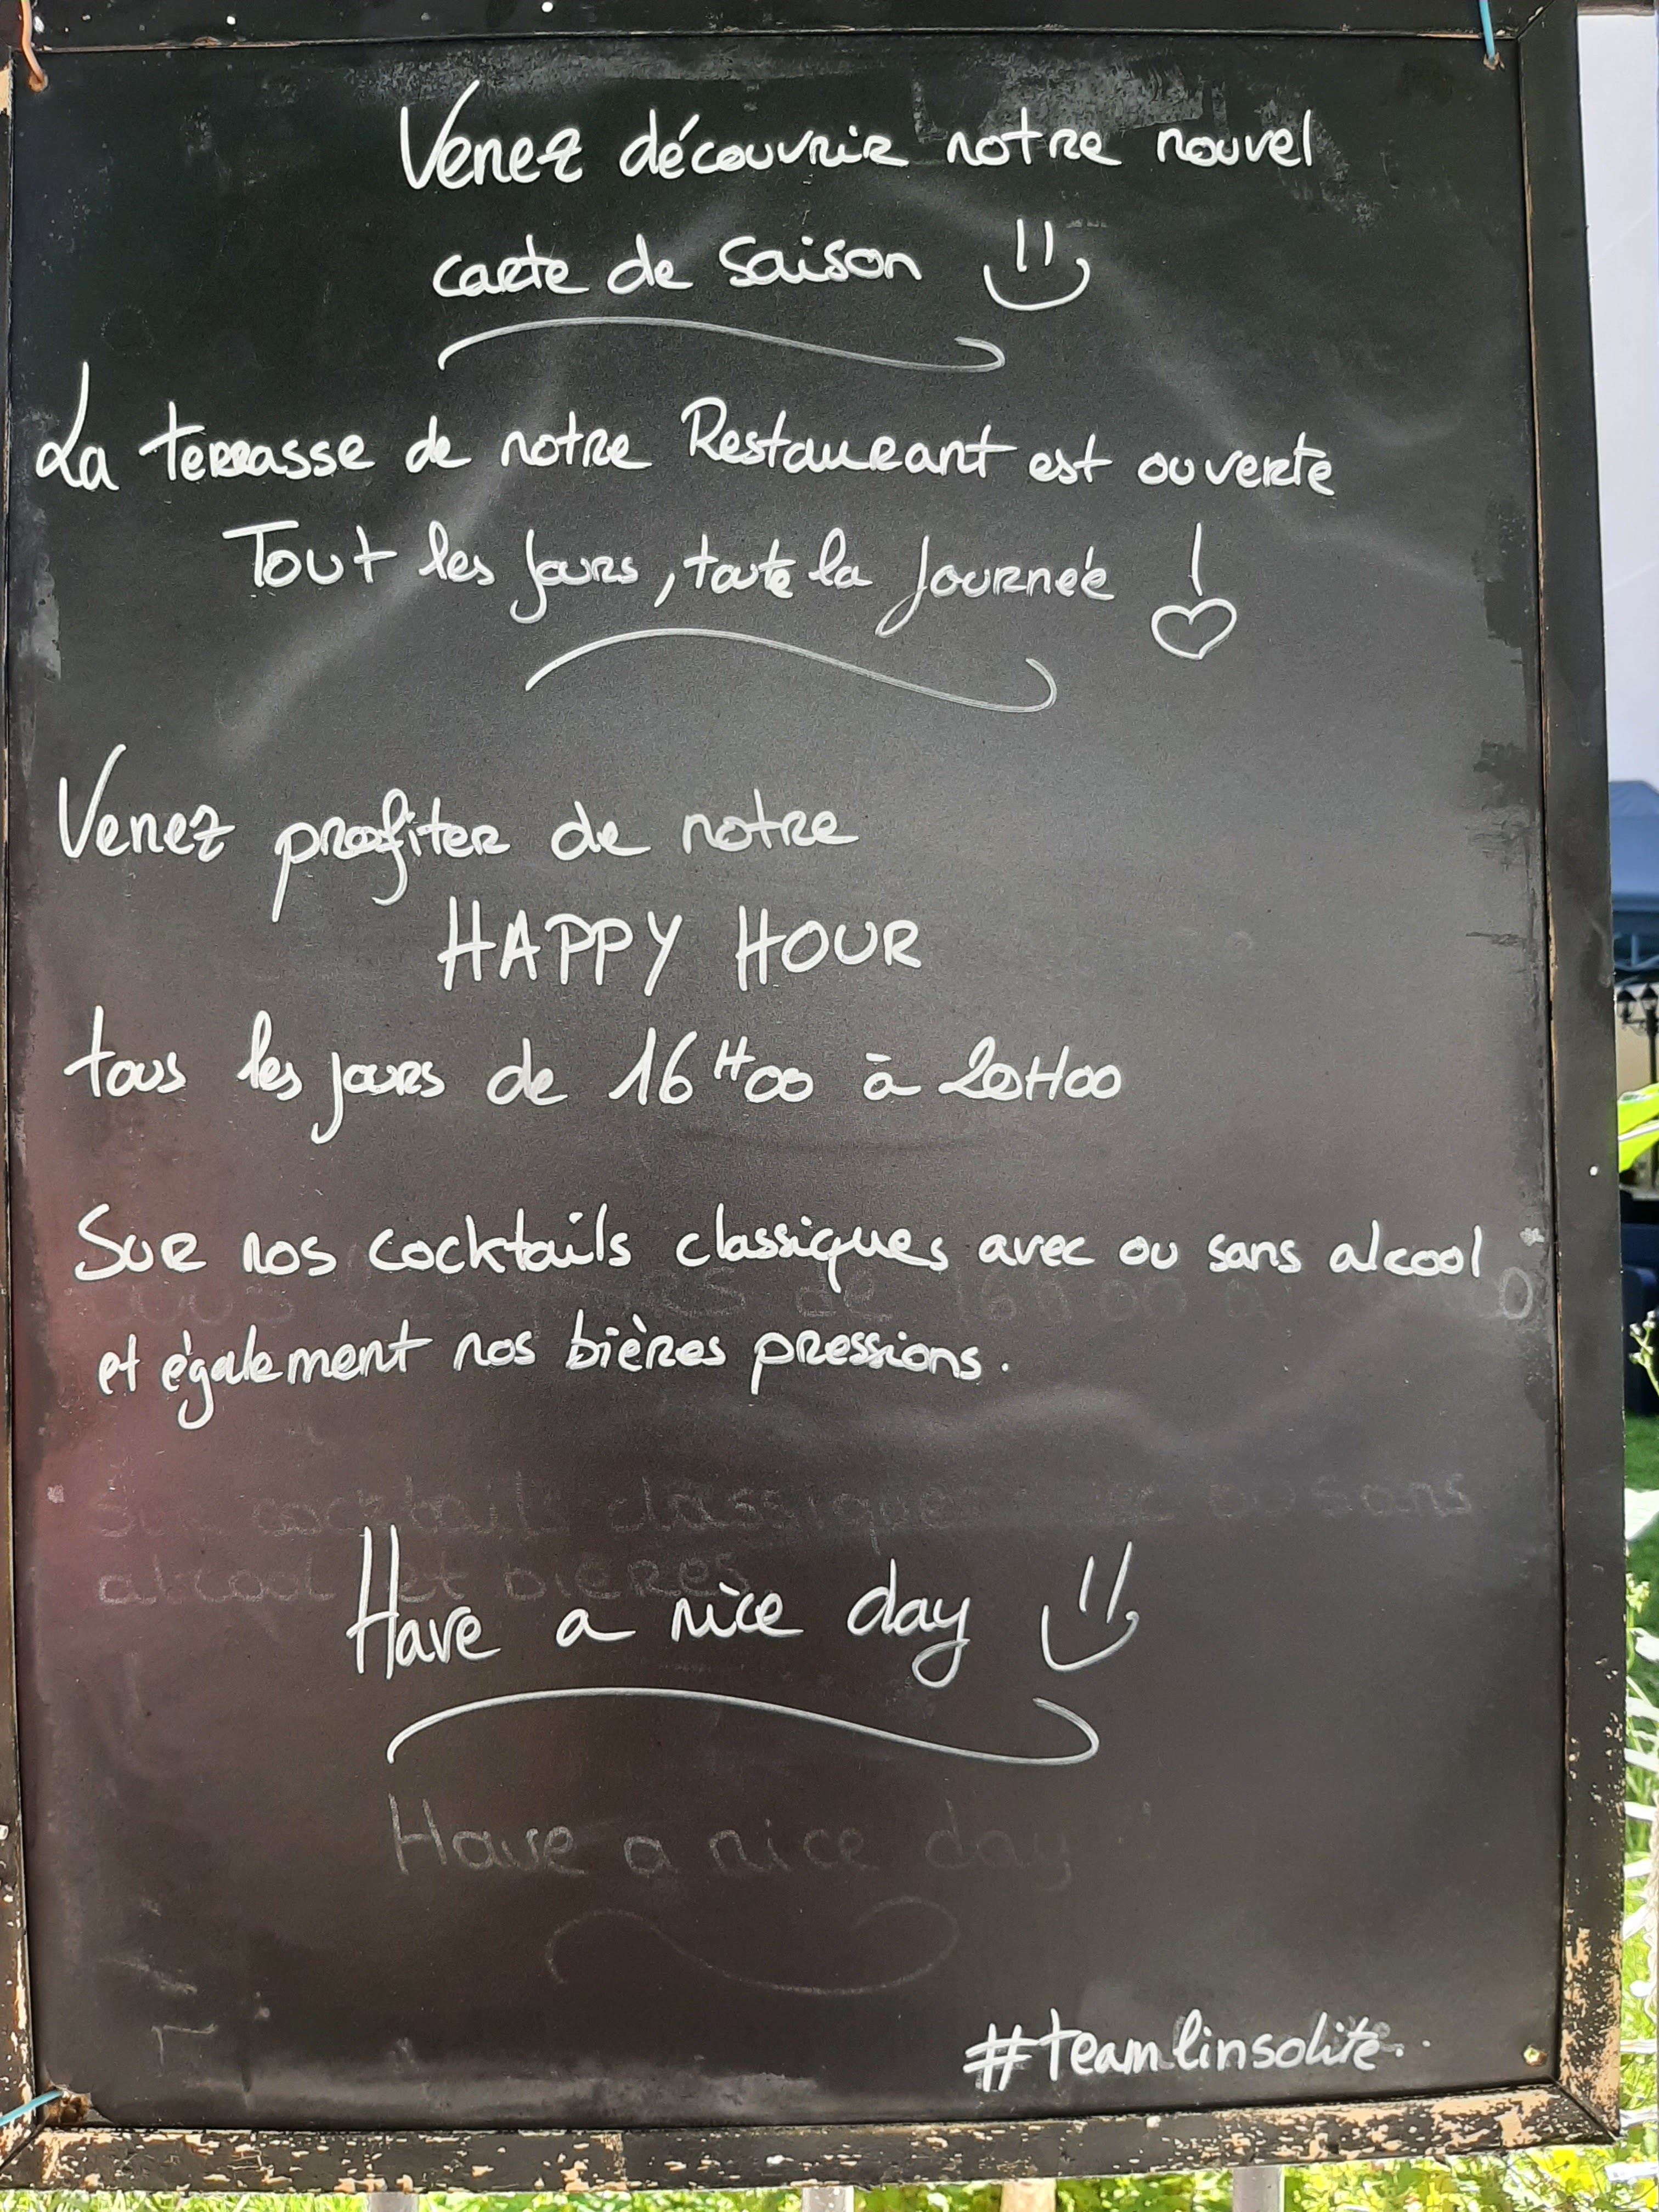 Venez découvrir notre nouvel
carte de saison
La terrasse de notre Restaurant est ouverte
Tout les jours, toute la journée !
Venez profiter de notre
HAPPY HOUR
tous les jours de 16H00 à 20H00
Sur nos cocktails classiques avec ou sans alcool
et également nos bières pressions.
cocktails classique ou sans
alcool et bieres
Have a nice day
Have a nice day
#teamlinsolite..